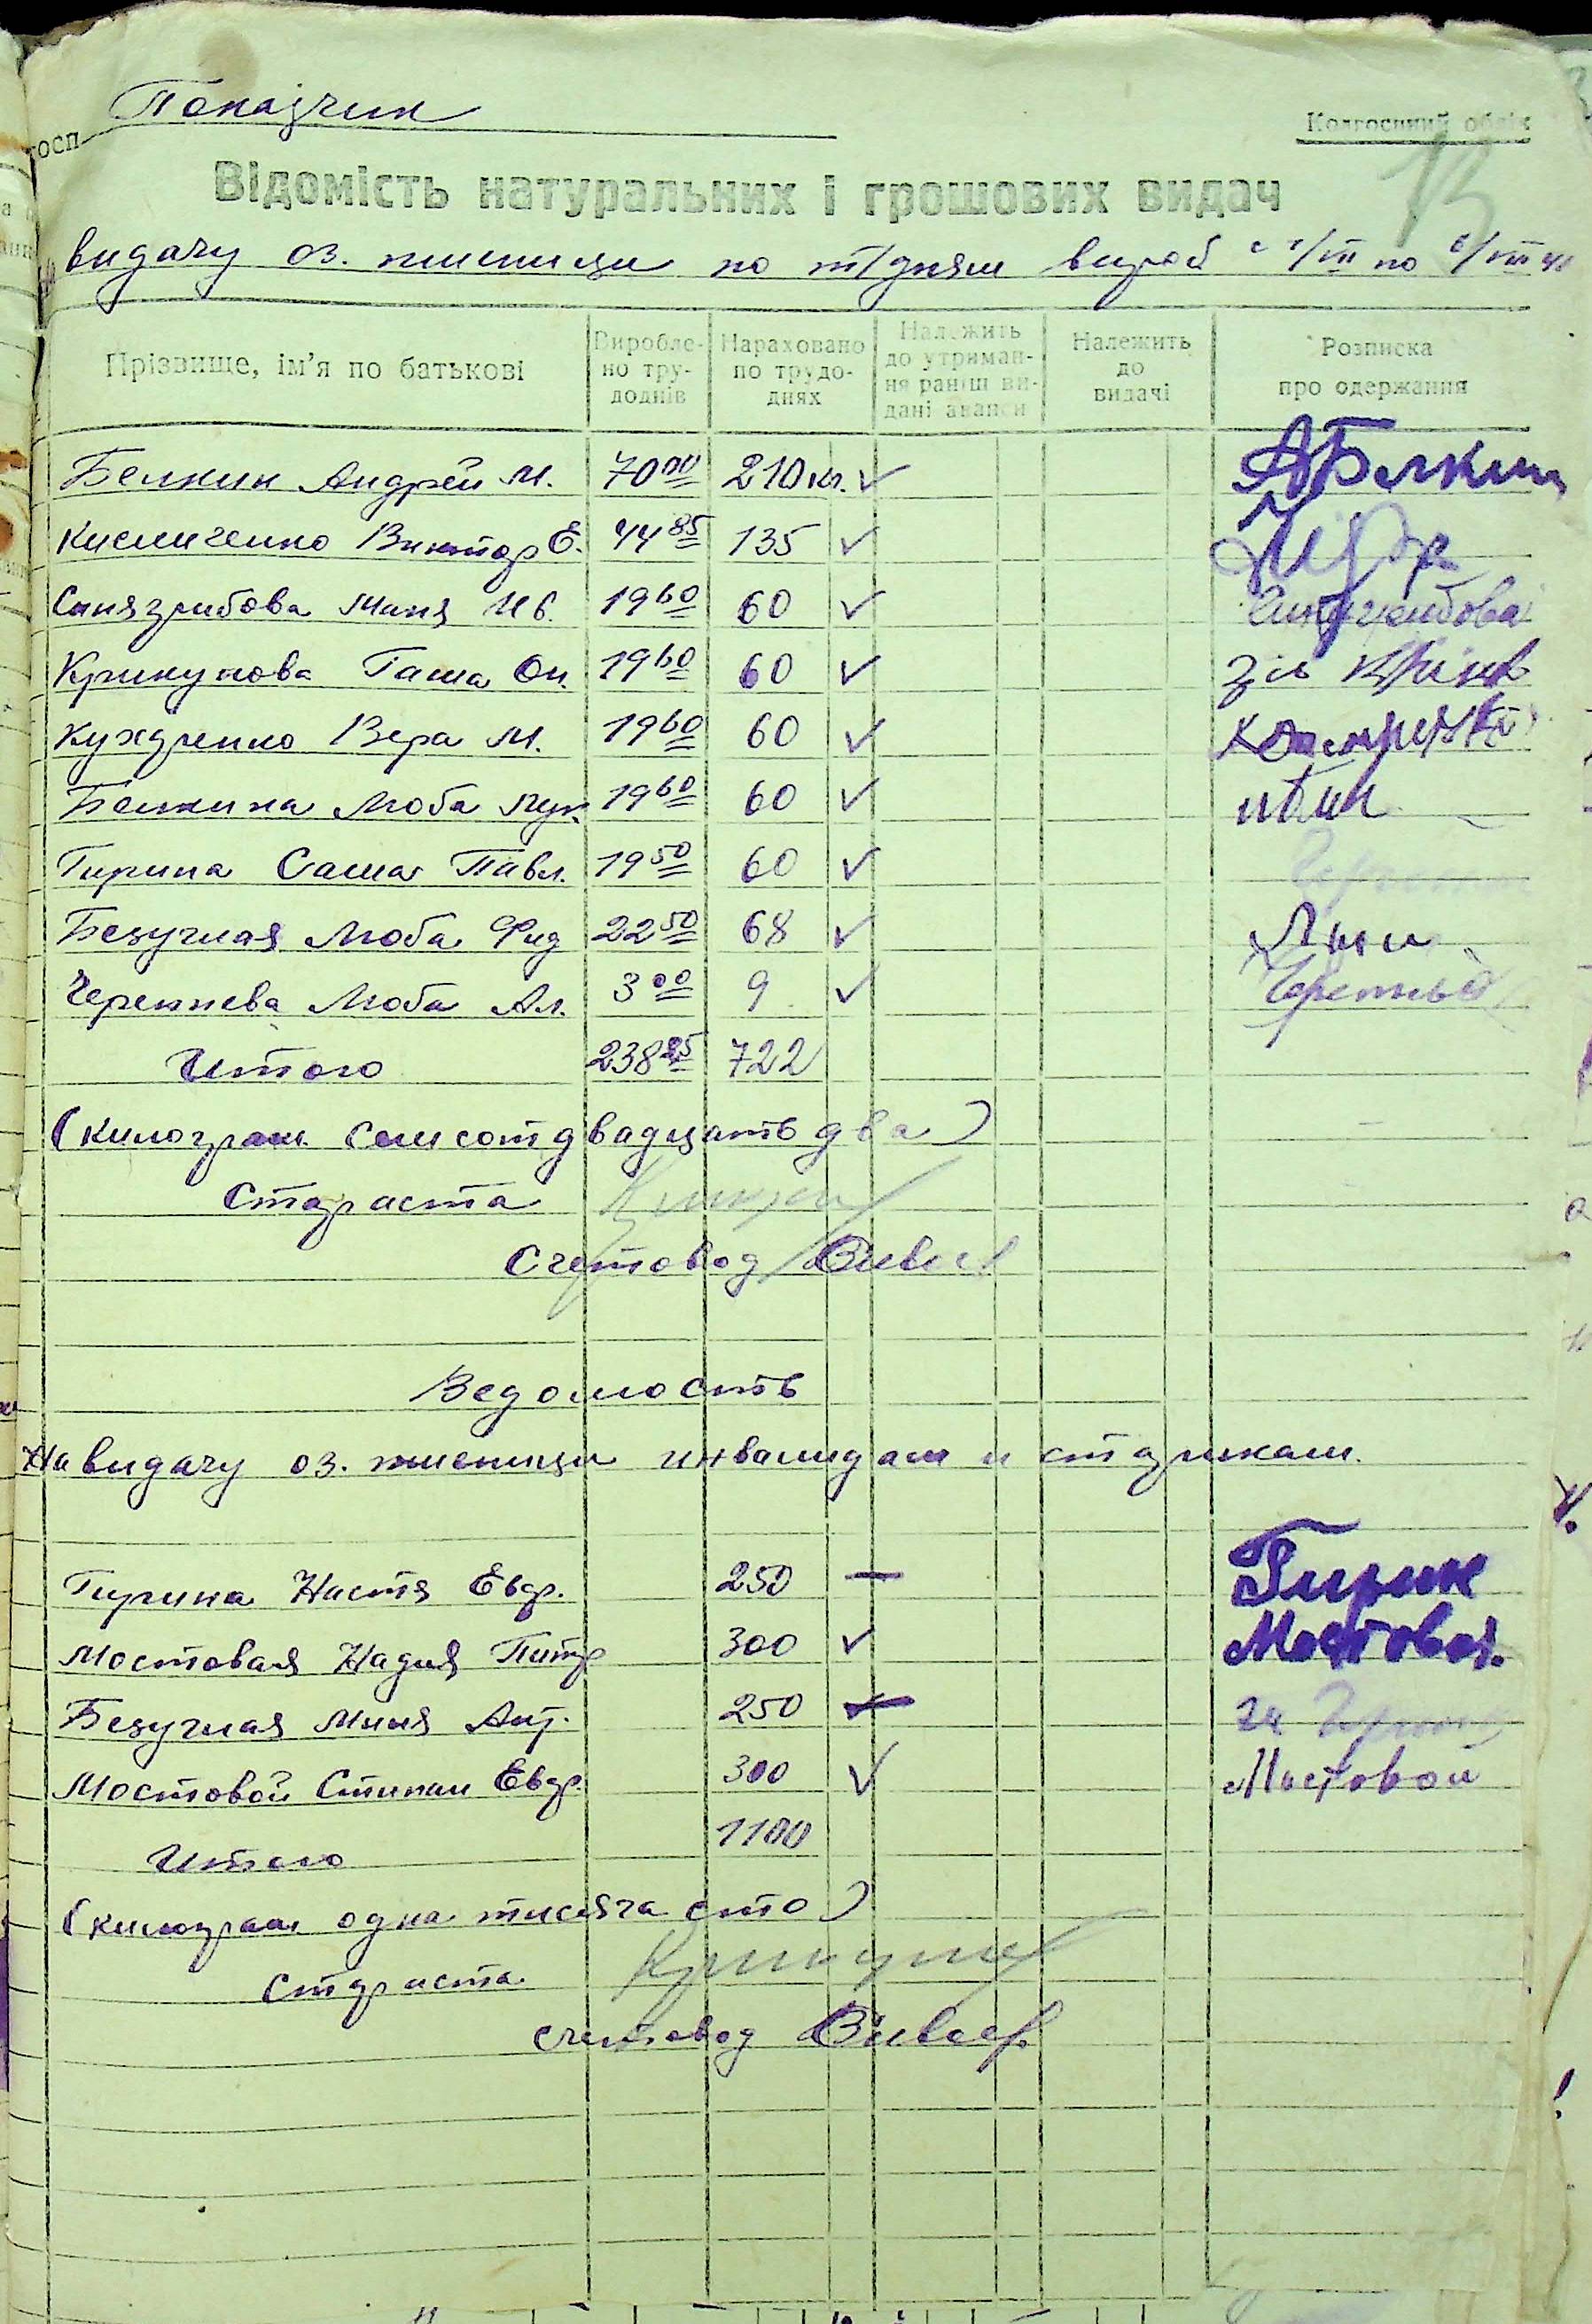 госп Показчик
Колгоспний облік
13
Відомість натуральних і грошових видач
видачу оз. пшеници по т/дням вироб с 1/III по 6/III
Прізвище, ім'я по батькові Виробле-но тру-доднів Нараховано по трудо-днях Належить до утриман-ня раніш ви-дані аванси Належить до видачі Розписка про одержання
Белкин Андрей М. 70 00 210 кг. ✓ АБелкин
Кисличенко Виктор Е. 44 85 135 ✓
Синягрибова Маня Ив. 19 60 60 ✓ Синягрибова
Крикунова Гаша Он. 19 60 60 ✓
Кухаренко Вера М. 19 60 60 ✓
Белкина Люба Лук. 19 60 60 ✓
Гирина Саша Павл. 19 50 60 ✓
Безуглая Люба Фид 22 50 68 ✓
Черепнева Люба Ал. 3 00 9 ✓
Итого 238 25 722
(килограм семсот двадцать два)
Стараста
Счетовод
Ведомость
На видачу оз. пшеници инвалидам и старикам.
Гирина Настя Евдр. 250 — Гирин
Мостовая Надия Питр 300 ✓ Мостовая.
Безуглая Миня Ант. 250 за
Мостовой Стипан Евдр. 300 ✓ Мостовой
Итого 1100
(килограм одна тисяча сто)
Стараста Крикун
счетовод